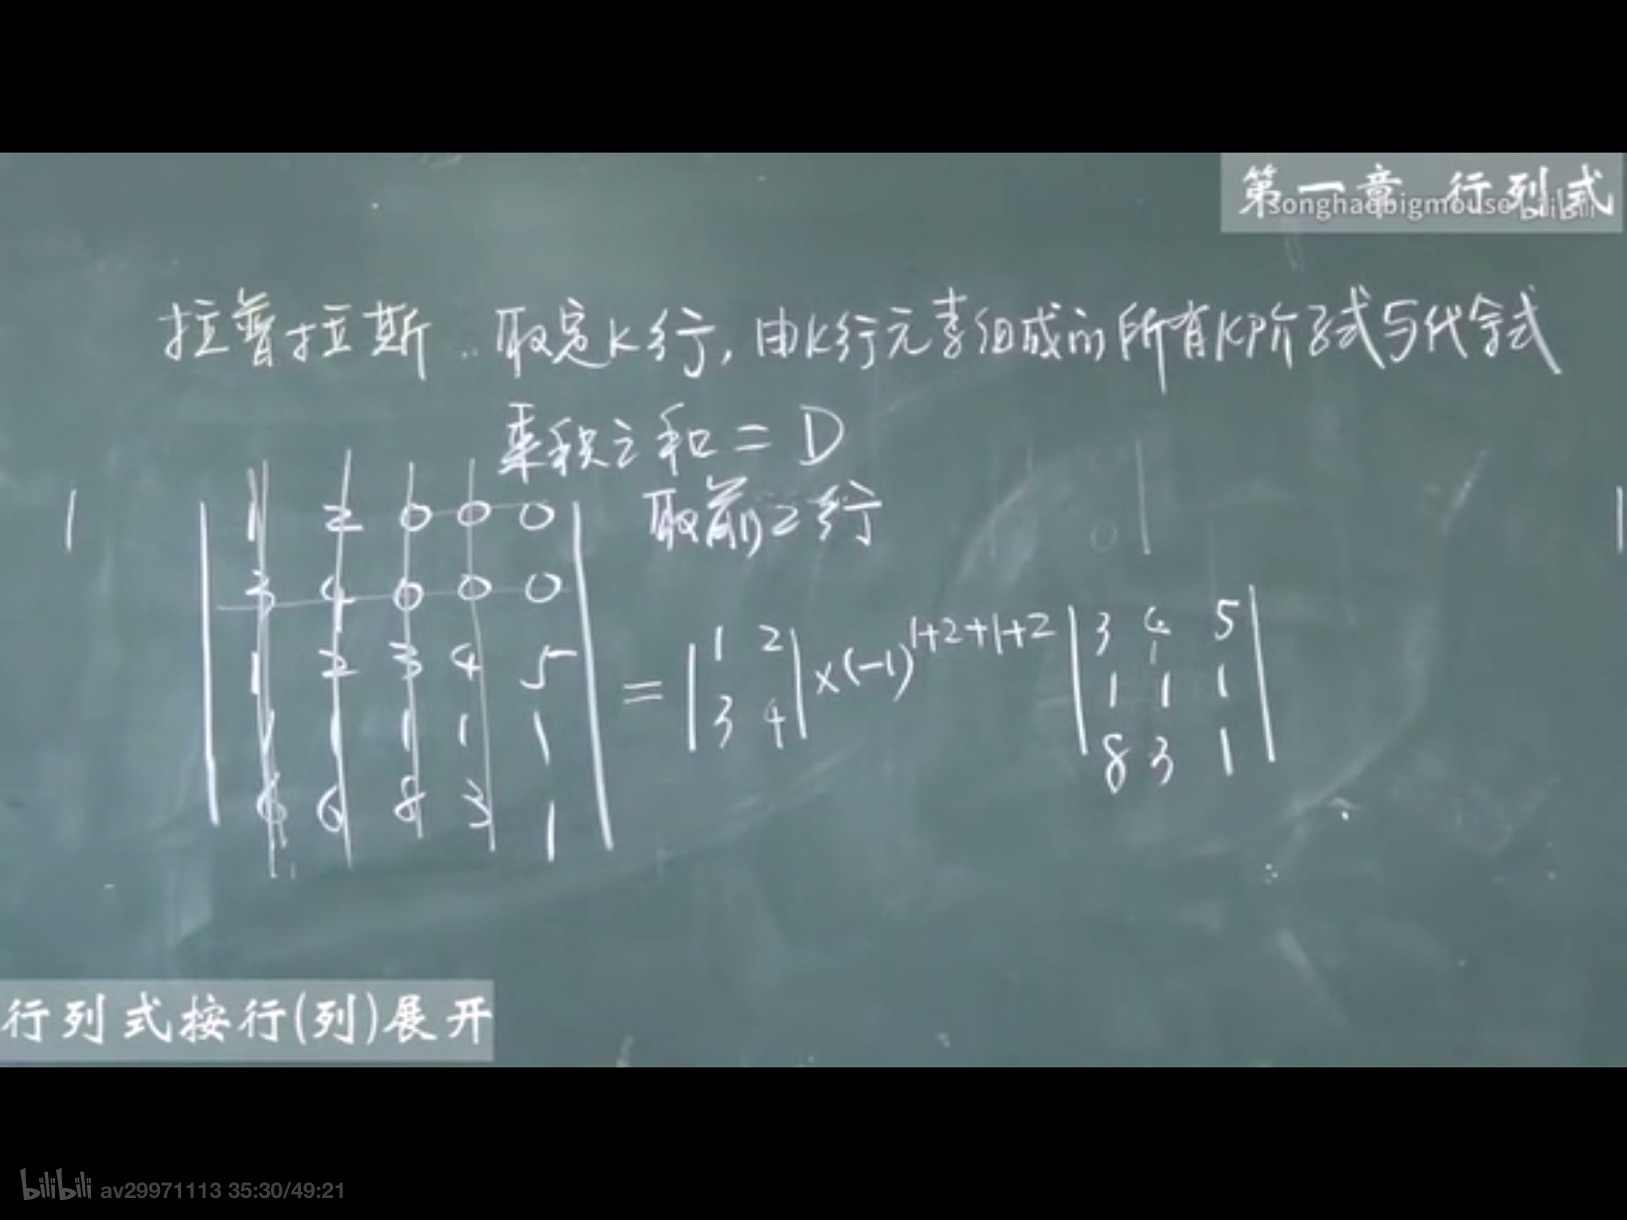 第一章 行列式
songhaobigmouse bilibili
拉普拉斯 取定K行,由K行元素组成的所有K阶子式与代余式
乘积之和=D
取前2行
1 2 0 0 0
3 4 0 0 0
1 2 3 4 5
1 1 1 1 1
6 6 8 3 1
= |1 2| ×(-1)^1+2+1+2 |3 4 5|
|3 4| |1 1 1|
|8 3 1|
行列式按行(列)展开
bilibili av29971113 35:30/49:21